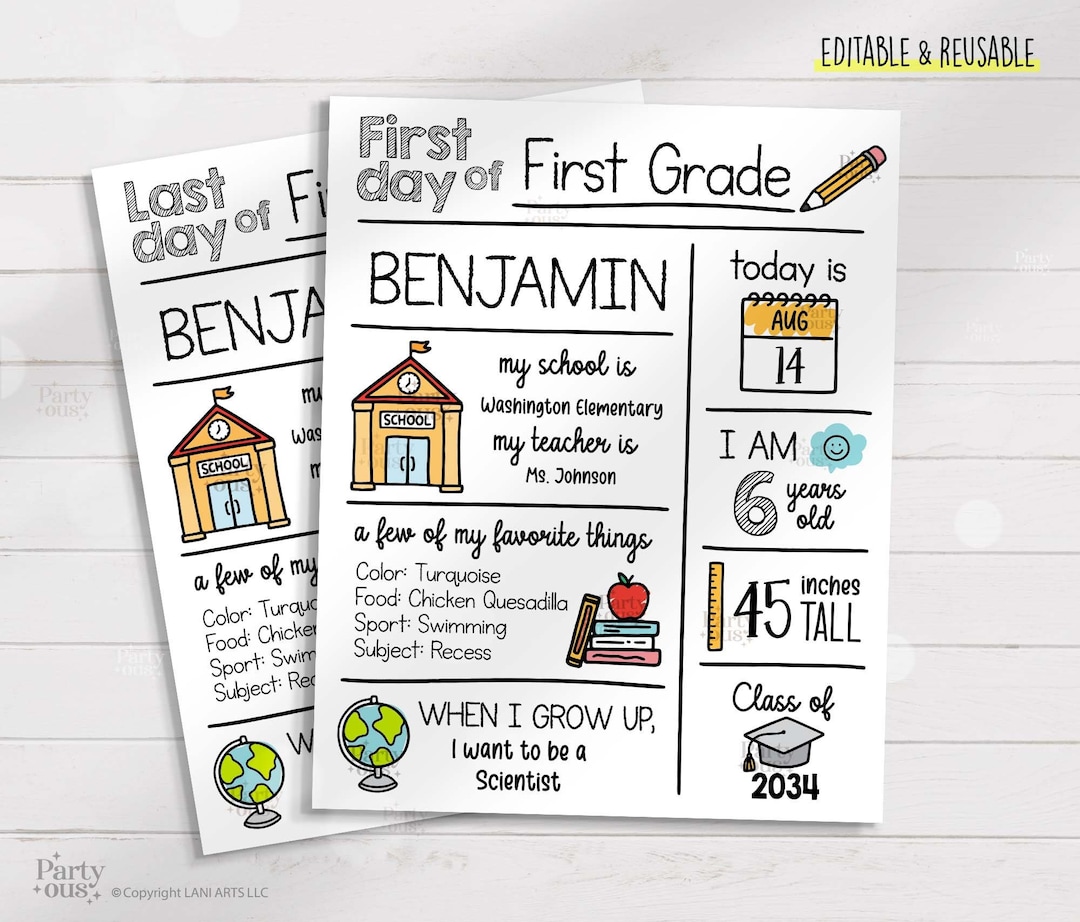 EDITABLE & REUSABLE
First
day of First Grade
BENJAMIN
my school is
Washington Elementary
my teacher is
Ms. Johnson
SCHOOL
a few of my favorite things
Color: Turquoise
Food: Chicken Quesadilla
Sport: Swimming
Subject: Recess
WHEN I GROW UP,
I want to be a
Scientist
today is
AUG
14
I AM
6 years
old
45 inches
TALL
Class of
2034
Last
day of Fi
BENJA
SCHOOL
my
Was
m
a few of my
Color: Turquo
Food: Chicken
Sport: Swim
Subject: Rec
W
Party
ous
©Copyright LANI ARTS LLC